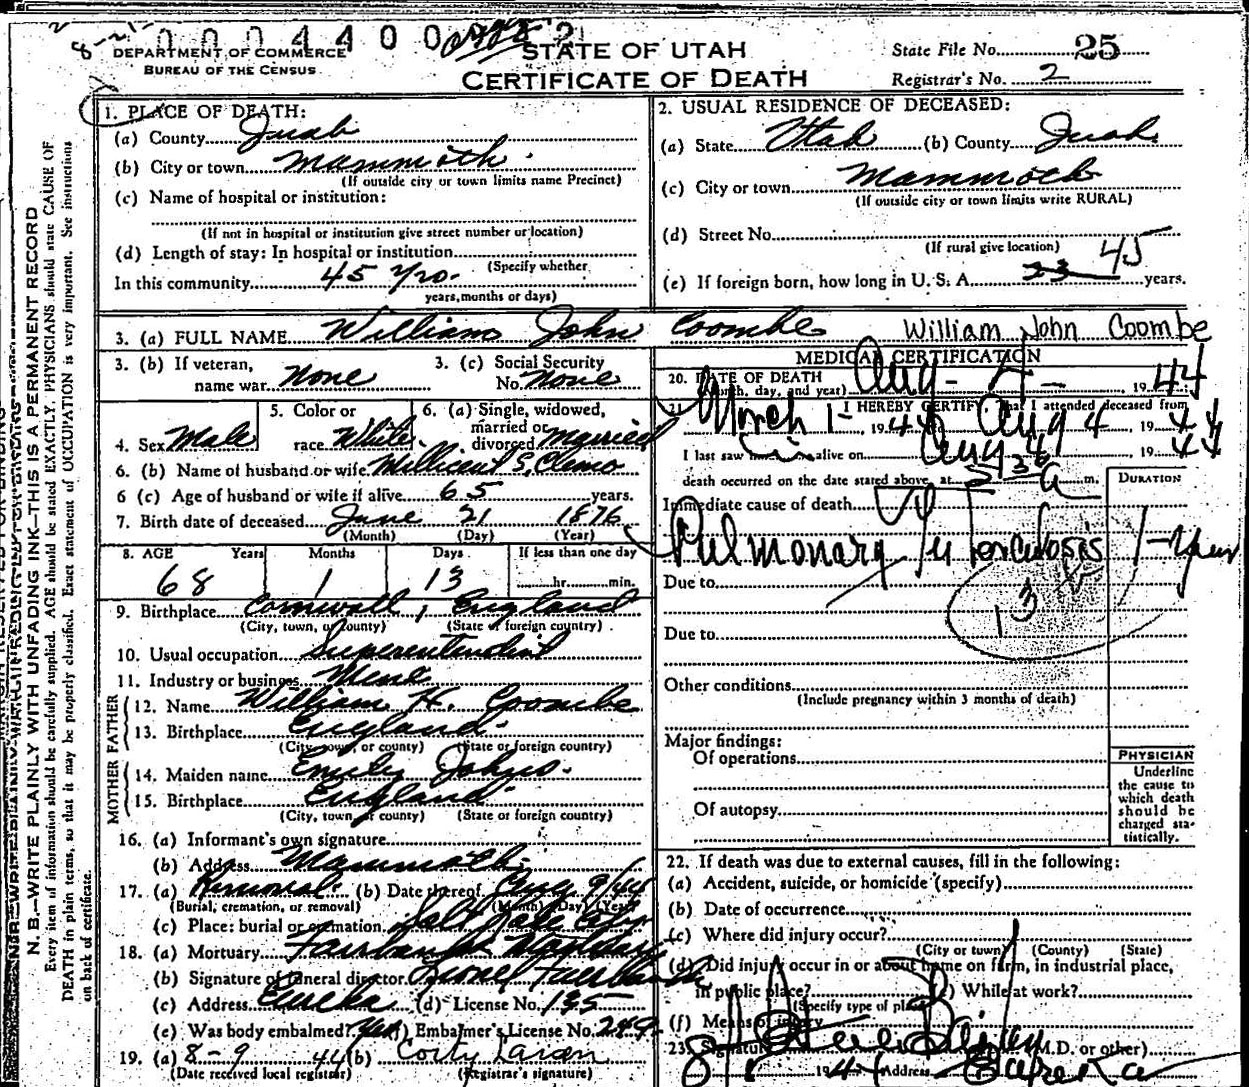 0 0 0 4 4 0 0
8-21
DEPARTMENT OF COMMERCE
BUREAU OF THE CENSUS
STATE OF UTAH
CERTIFICATE OF DEATH
State File No. 25
Registrar's No. 2
N. B.—WRITE PLAINLY WITH UNFADING INK—THIS IS A PERMANENT RECORD
Every item of information should be carefully supplied. AGE should be stated EXACTLY. PHYSICIANS should state CAUSE OF
DEATH in plain terms, so that it may be properly classified. Exact statement of OCCUPATION is very important. See instructions
on back of certificate.
1. PLACE OF DEATH:
(a) County Juab
(b) City or town Mammoth
(If outside city or town limits name Precinct)
(c) Name of hospital or institution:
(If not in hospital or institution give street number or location)
(d) Length of stay: In hospital or institution
(Specify whether
In this community 45 yrs.
years, months or days)
2. USUAL RESIDENCE OF DECEASED:
(a) State Utah (b) County Juab
(c) City or town Mammoth
(If outside city or town limits write RURAL)
(d) Street No.
(If rural give location)
(e) If foreign born, how long in U. S. A. 23 45 years.
3. (a) FULL NAME William John Coombe William John Coombe
3. (b) If veteran, name war None
3. (c) Social Security No. None
4. Sex Male
5. Color or race White
6. (a) Single, widowed, married or divorced Married
6. (b) Name of husband or wife Millicent S. Clemo
6 (c) Age of husband or wife if alive 65 years.
7. Birth date of deceased June 21 1876
(Month) (Day) (Year)
8. AGE Years Months Days If less than one day
68 1 13 hr. min.
9. Birthplace Cornwall, England
(City, town, or county) (State or foreign country)
10. Usual occupation Superentendint
11. Industry or business Mine
FATHER
12. Name William H. Coombe
13. Birthplace England
(City, town, or county) (State or foreign country)
MOTHER
14. Maiden name Emily Johns.
15. Birthplace England
(City, town, or county) (State or foreign country)
16. (a) Informant's own signature
(b) Address Mammoth
17. (a) Removal (b) Date thereof Aug 9/44
(Burial, cremation, or removal) (Month) (Day) (Year)
(c) Place: burial or cremation Salt Lake City
18. (a) Mortuary Fairbanks
(b) Signature of funeral director
(c) Address Eureka (d) License No. 135
(e) Was body embalmed? Yes (f) Embalmer's License No. 249
19. (a) 8-9 44 (b)
(Date received local registrar) (Registrar's signature)
MEDICAL CERTIFICATION
20. DATE OF DEATH
(month, day, and year) Aug - 4 - 1944
21. I HEREBY CERTIFY, That I attended deceased from
March 1 - 1944 Aug 4, 1944
I last saw him alive on Aug 4 1944
death occurred on the date stated above, at a m.
DURATION
Immediate cause of death
Pulmonary Tuberculosis 1-year
13
Due to
Due to
Other conditions
(Include pregnancy within 3 months of death)
Major findings:
Of operations
Of autopsy
PHYSICIAN
Underline
the cause to
which death
should be
charged sta-
tistically.
22. If death was due to external causes, fill in the following:
(a) Accident, suicide, or homicide (specify)
(b) Date of occurrence
(c) Where did injury occur?
(City or town) (County) (State)
(d) Did injury occur in or about home on farm, in industrial place,
in public place? (e) While at work?
(Specify type of place)
(f) Means of injury
23. Signature (M.D. or other)
1944 Address Eureka